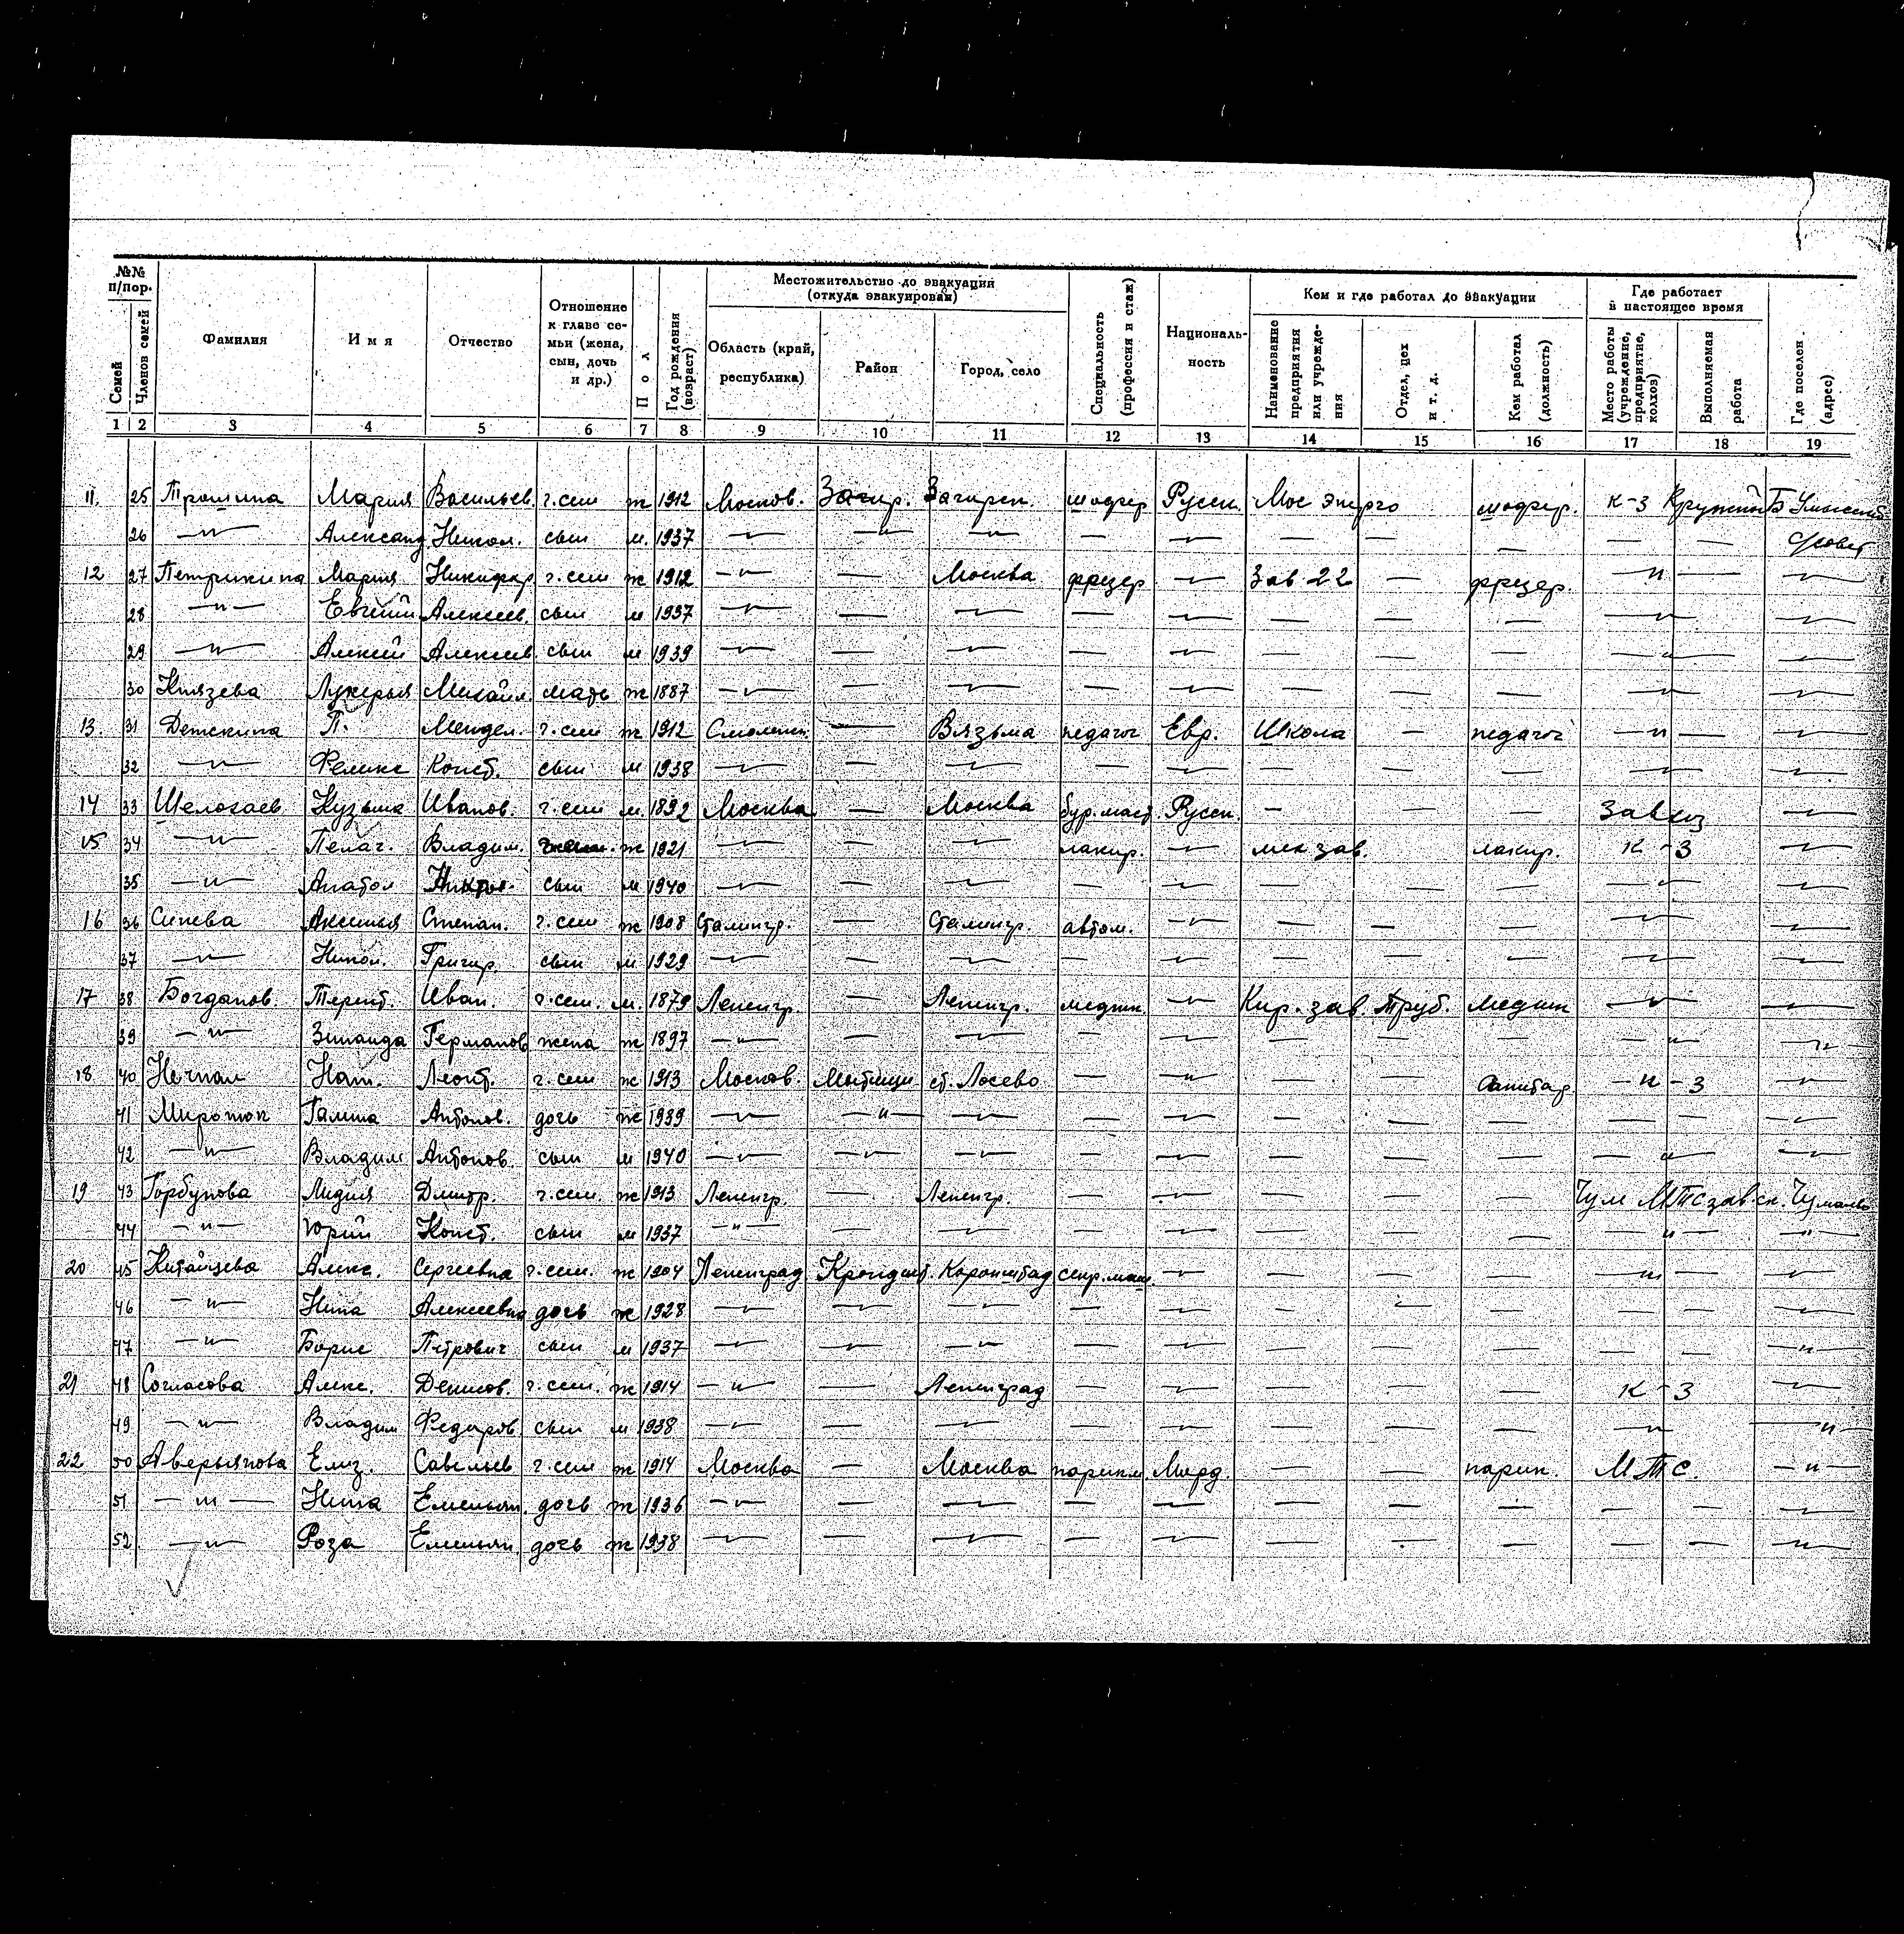 №№ п/пор. Местожительство до эвакуации (откуда эвакуирован) Кем и где работал до эвакуации Где работает в настоящее время
Семей Членов семей Фамилия Имя Отчество Отношение к главе семьи (жена, сын, дочь и др.) Пол Год рождения (возраст) Область (край, республика) Район Город, село Специальность (профессия и стаж) Националь-ность Наименование предприятия или учрежде-ния Отдел, цех и т. д. Кем работал (должность) Место работы (учреждение, предприятие, колхоз) Выполняемая работа Где поселен (адрес)
1 2 3 4 5 6 7 8 9 10 11 12 13 14 15 16 17 18 19
11. 25 Трошина Мария Васильев. г. сем ж 1912 Москов. Загор. Загорск. шофер Русск. Мос энерго шофер. к-з
26 —"— Александ. Никол. сын м. 1937 —"— —"— —"— — —"— — — — — — Совет
12 27 Петрикина Мария Никифор. г. сем ж 1912 —"— — Москва фрезер —"— Зав 22 — фрезер. —"— — —"—
28 —"— Евгений Алексеев. сын м 1937 —"— — —"— — —"— — — — —"— —"—
29 —"— Алексей Алексеев. сын м 1939 —"— — —"— — —"— — — — —"— —"—
30 Князева Лукерья Михайл. мать ж 1887 —"— — —"— — —"— — — — —"— —"—
13. 31 Деткина П. Мендел. г. сем ж 1912 Смоленск. — Вязьма педагог Евр. Школа — педагог —"— — —"—
32 —"— Феликс Конст. сын м 1938 —"— — —"— — —"— — — — —"— —"—
14 33 Шелохаев Кузьма Иванов. г. сем м. 1892 Москва — Москва бур. маст. Русск. — — — Завхоз —"—
15 34 —"— Пелаг. Владим. ж 1921 —"— — —"— лакир. —"— мех зав. лакир. к-з —"—
35 —"— Анатол сын м 1940 —"— — —"— — —"— — — — —"— —"—
16 36 Синева Аксинья Степан. г. сем ж 1908 Сталингр. — Сталингр. автом. —"— — — — —"— —
37 —"— Никол. Григор. сын м 1929 —"— — —"— — —"— — — — —"— —
17 38 Богданов. Терент. Иван. г. сем. м. 1879 Ленингр. — Ленингр. медник. —"— Кир. зав. Труб. медник —"— —
39 —"— Зинаида Германов жена ж 1897 —"— — —"— — —"— — — — —"— —"—
18 40 Нат. Леонт. г. сем ж 1913 Москов. Мытищи ст. Лосево — —"— — — Санитар. — к-з —"—
41 Миротюк Галина Антонов. дочь ж 1939 —"— —"— —"— — —"— — — — — — —"—
42 —"— Владим Антонов. сын м 1940 —"— —"— —"— — —"— — — — —"— —"—
19 43 Горбунова Лидия Дмитр. г. сем. ж 1913 Ленингр. — Ленингр. — —"— — — — Чум МТС зав. ск. Чумаево
44 —"— Юрий Конст. сын м 1937 —"— — —"— — —"— — — — —"— —"—
20 45 Китайцева Алекс. Сергеевна г. сем. ж 1904 Ленинград Крондшт. Кронштад секр. маш. —"— — — — —"— —
46 —"— Нина Алексеевна дочь ж 1928 —"— —"— —"— — —"— — — — — — —"—
47 —"— Борис Петрович сын м 1937 —"— —"— —"— — —"— — — — — — —"—
21 48 Согласова Алекс. Денисов. г. сем. ж 1914 —"— — Ленинград — — — — — к-з —"—
49 —"— Владим Федоров. сын м 1938 —"— — —"— — —"— — — — —"— —"—
22 50 Аверьянова Елиз. Савельев г. сем ж 1914 Москва — Москва парикм Морд. — — парик. МТС. —"—
51 —"— Нина Емельян. дочь ж 1936 —"— — —"— — —"— — — — — — —"—
52 —"— Роза Емельян. дочь ж 1938 —"— — —"— — —"— — — — — — —"—